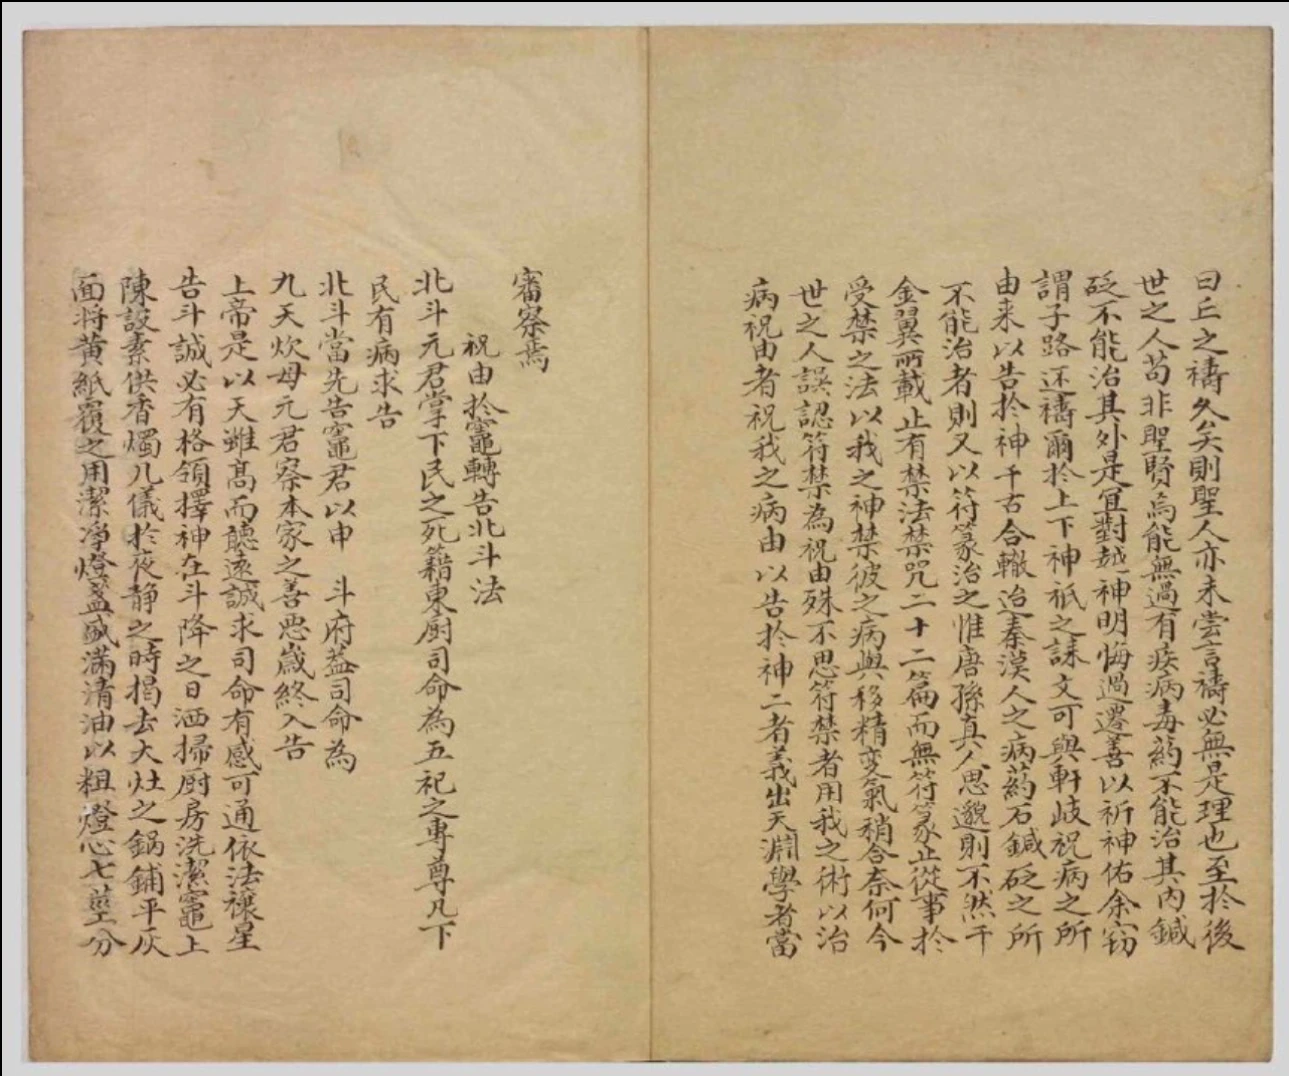 曰丘之禱久矣則聖人亦未嘗言禱必無是理也至扵後
世之人苟非聖賢烏能無過有疾病毒藥不能治其内鍼
砭不能治其外是宜對越神明悔過遷善以祈神佑余窃
謂子路还禱爾扵上下神祇之誄文可與軒岐祝病之所
由来以告扵神千古合轍迨秦漢人之病药石鍼砭之所
不能治者則又以符篆治之惟唐孫真人思邈則不然千
金翼所載止有禁法禁咒二十二篇而無符篆止從事扵
受禁之法以我之神禁彼之病與移精变氣稍合奈何今
世之人誤認符禁為祝由殊不思符禁者用我之術以治
病祝由者祝我之病由以告扵神二者義出天淵學者當
審察焉
祝由扵竈轉告北斗法
北斗元君掌下民之死籍東厨司命為五祀之專尊凡下
民有病求告
北斗當先告竈君以申　斗府葢司命為
九天炊母元君察本家之善惡歲終入告
上帝是以天雖高而聽遠誠求司命有感可通依法禳星
告斗誠必有格領擇神在斗降之日洒掃厨房洗潔竈上
陳設素供香燭几儀扵夜静之時揭去大灶之鍋鋪平灰
面将黄紙覆之用潔净燈盞盛滿清油以粗燈心七莖分